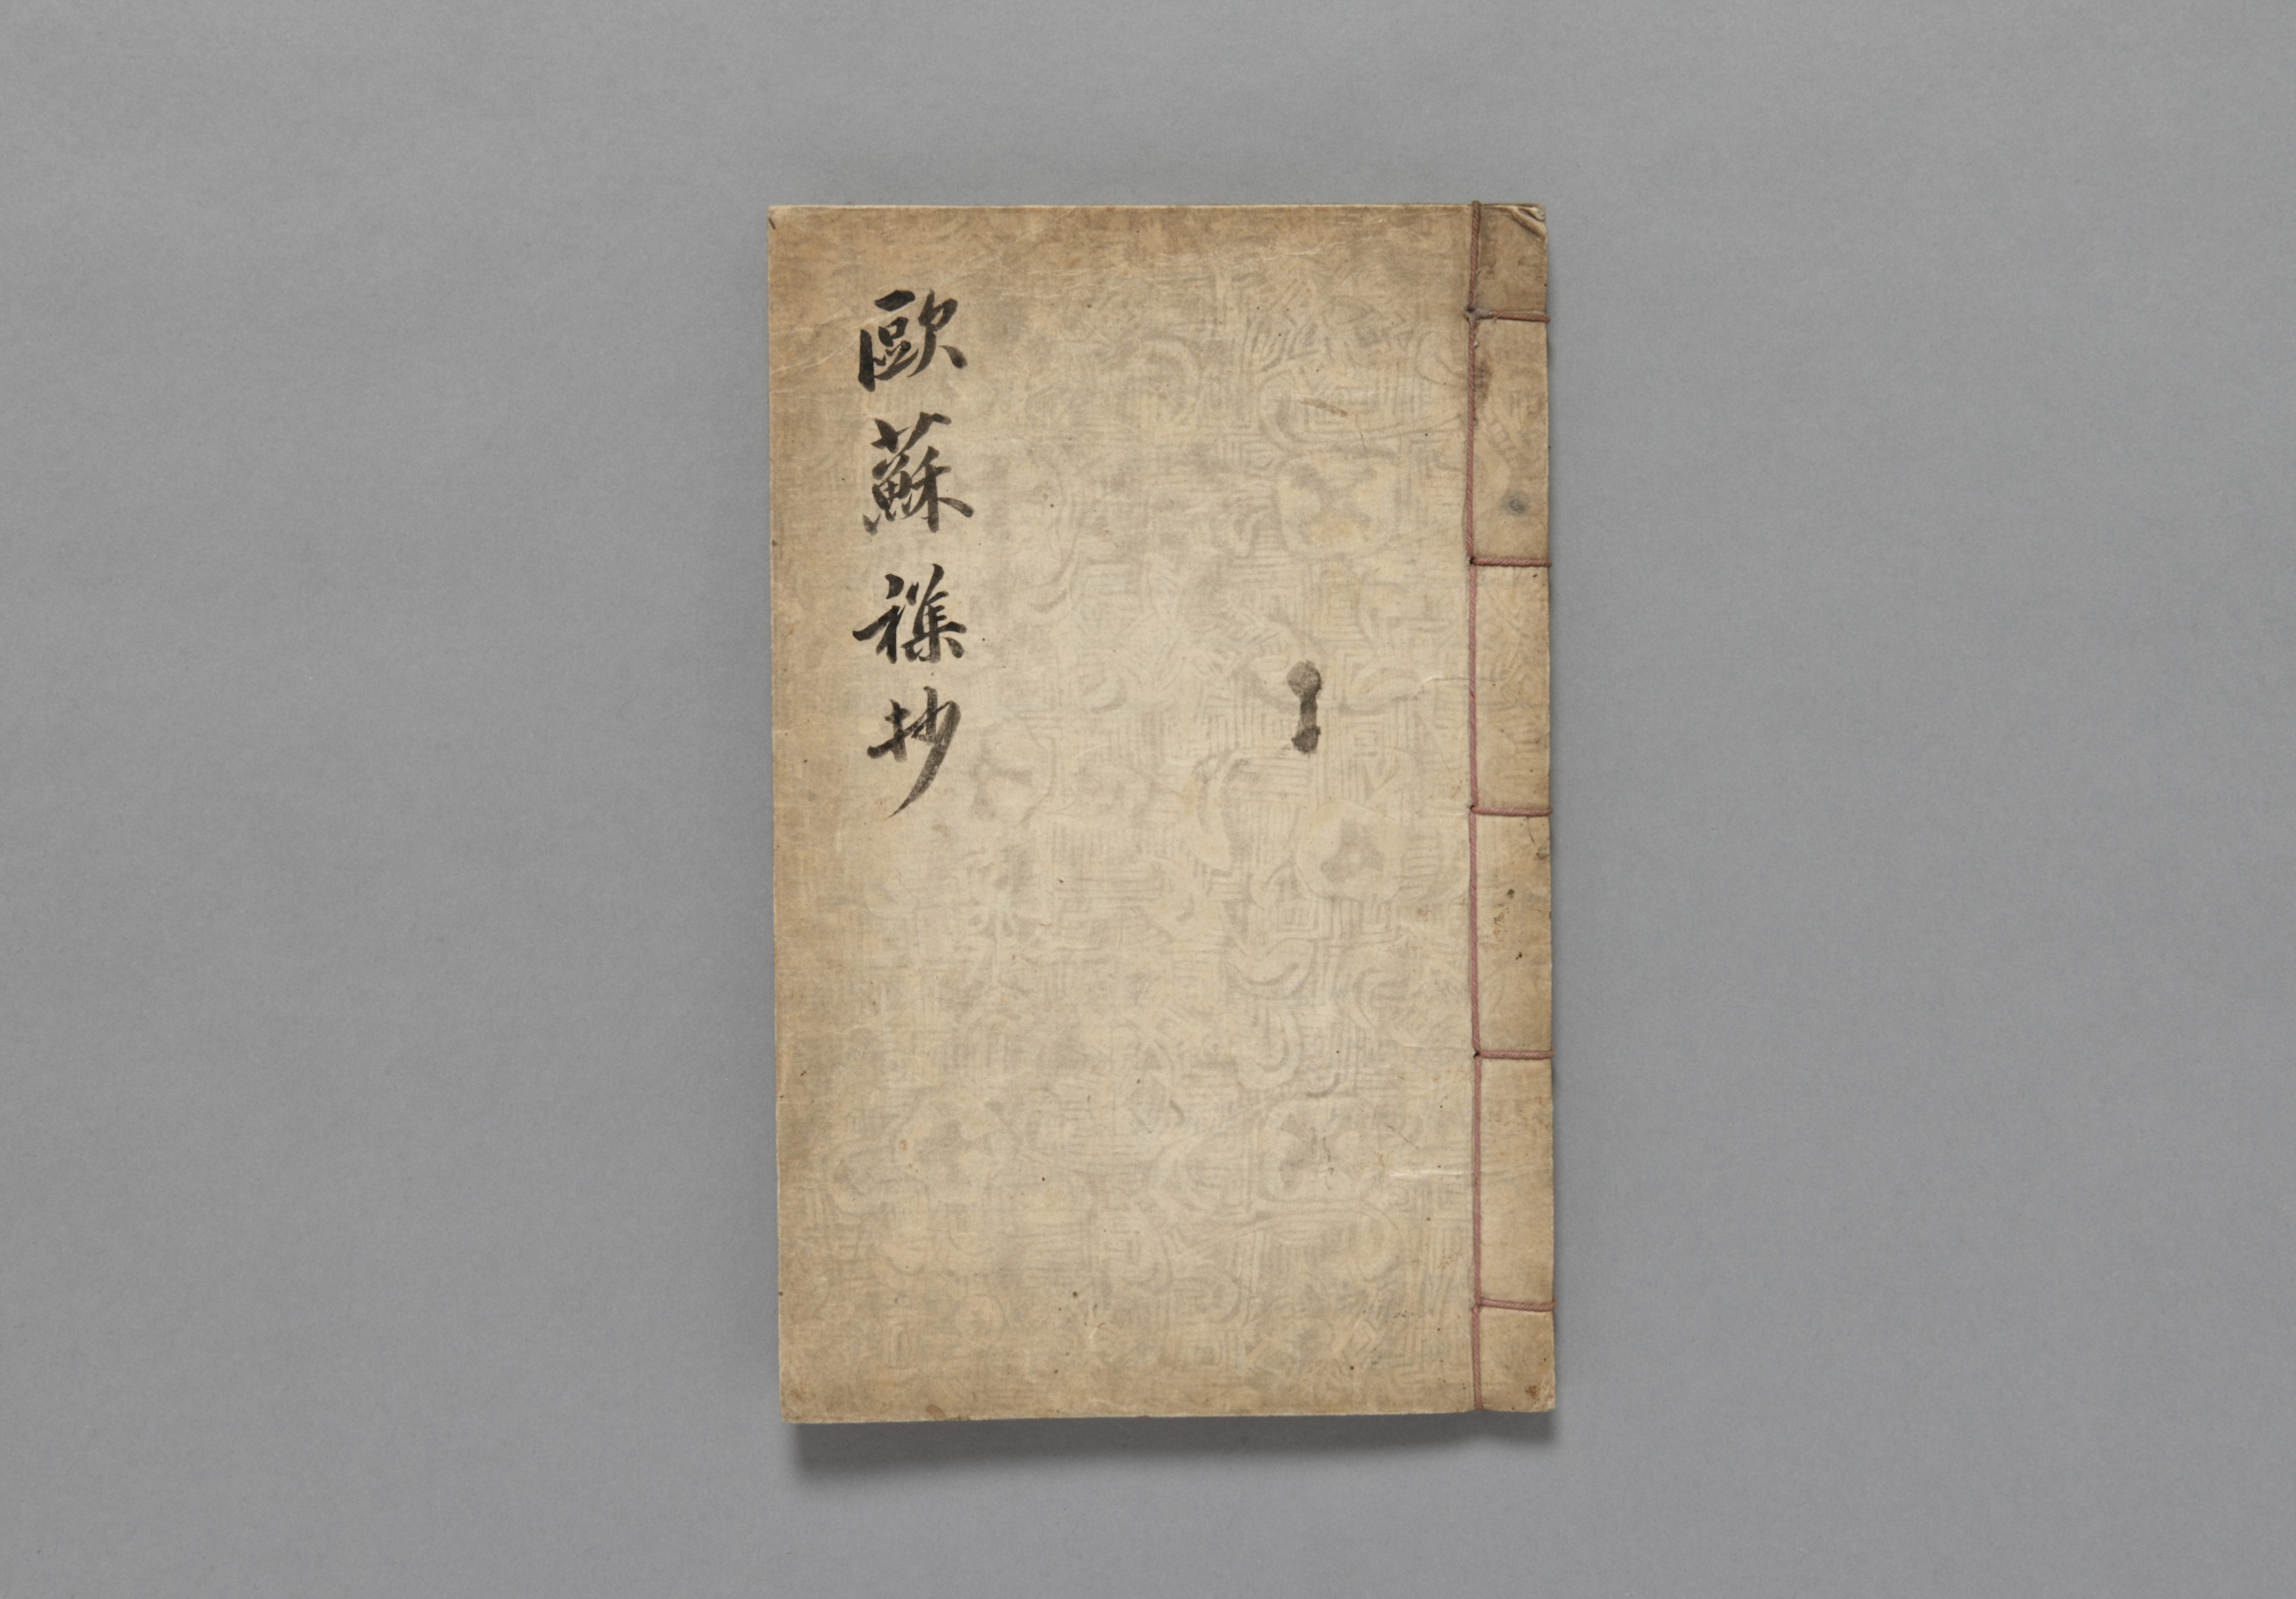 歐蘇襍抄